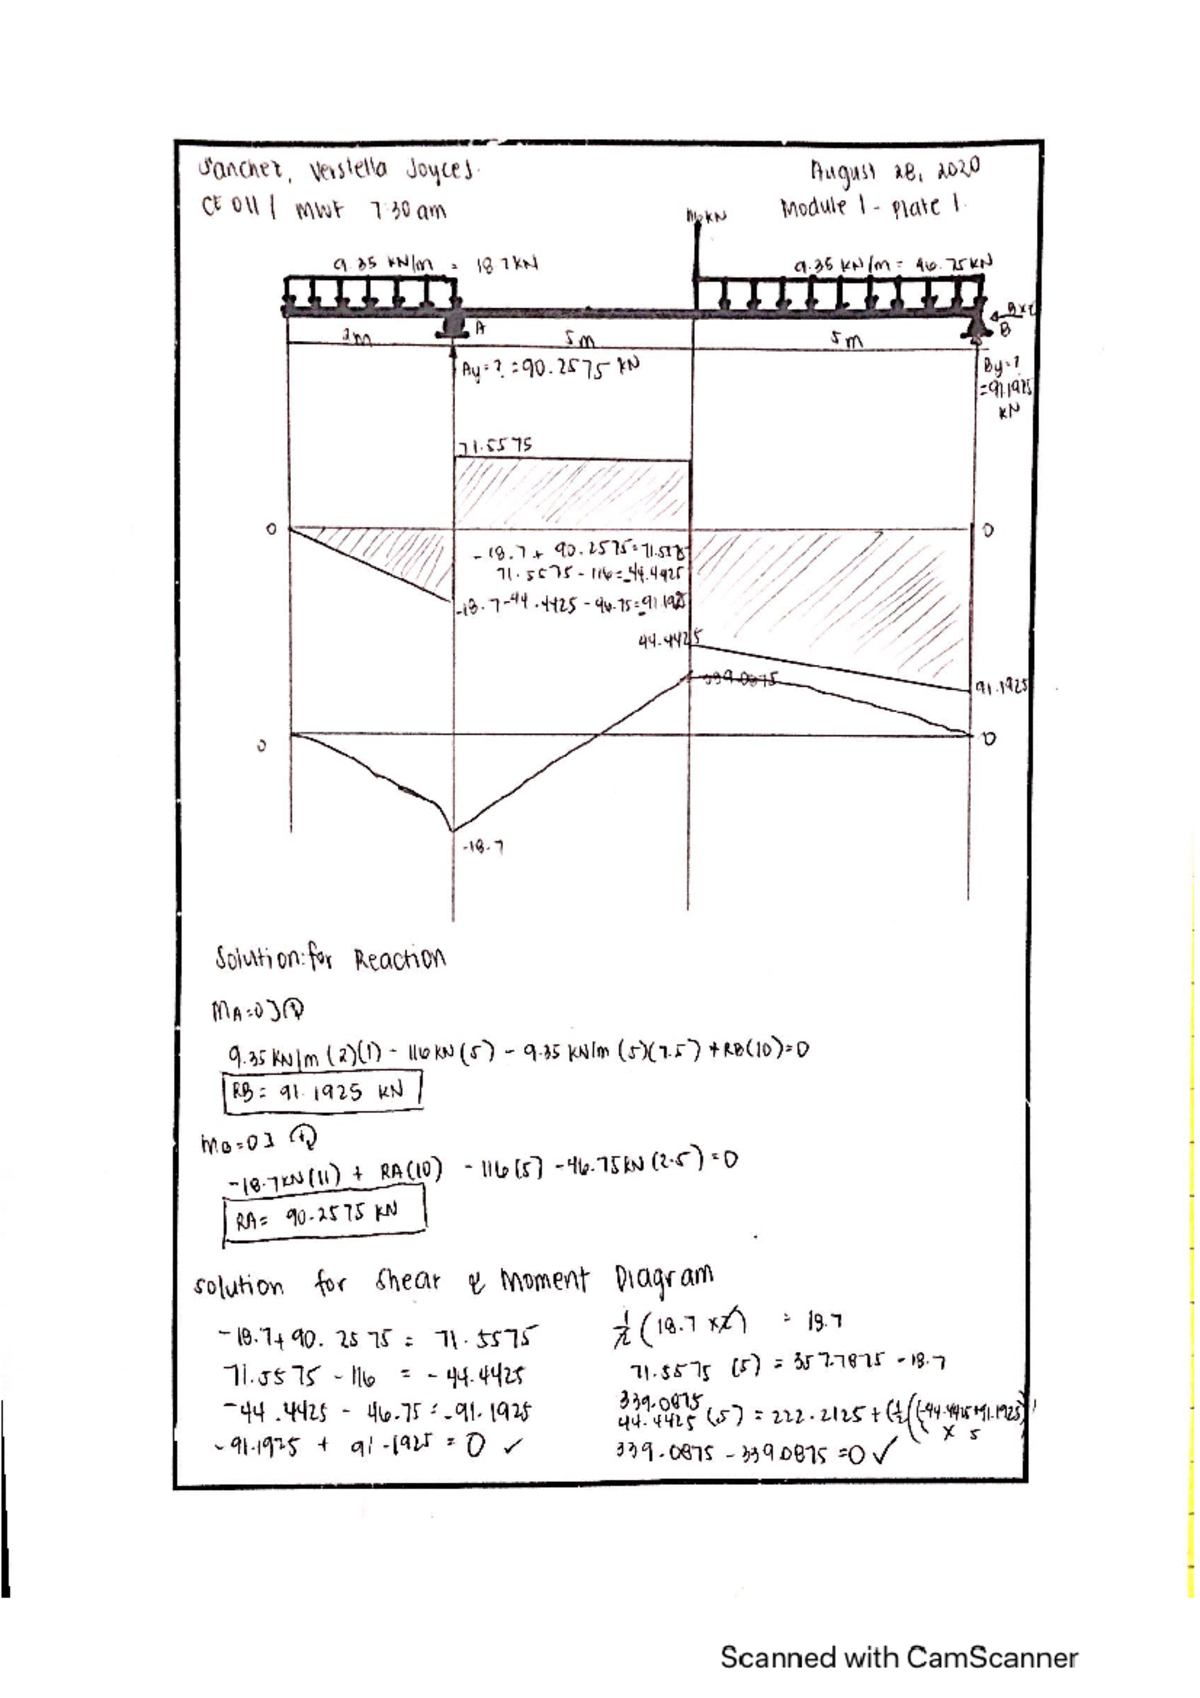 Sanchez, Verstella Joyces.
August 28, 2020
CE 011 / MWF 7:30 am
Module 1 - Plate 1.
116 KN
9.35 KN/m = 18.7 KN
9.35 KN/m = 46.75 KN
A
B
2m
5m
5m
Ay=? = 90.2575 KN
By=?
=91.1925
KN
71.5575
0
0
-18.7 + 90.2575=71.5575
71.5575 - 116=-44.4425
-18.7
-44.4425 - 46.75=-91.1925
44.4425
339.0875
91.1925
0
0
-18.7
Solution: for Reaction
MA=0]
9.35 KN/m (2)(1) - 116 KN (5) - 9.35 KN/m (5)(7.5) + RB(10)=0
RB= 91.1925 KN
MB=0]
-18.7 KN (11) + RA(10) - 116(5) - 46.75 KN (2.5) = 0
RA= 90.2575 KN
solution for Shear & Moment Diagram
-18.7+90.2575 = 71.5575
71.5575 - 116 = -44.4425
-44.4425 - 46.75 = -91.1925
-91.1925 + 91.1925 = 0 ✓
1/2 (18.7 x 2) = 18.7
71.5575 (5) = 357.7875 - 18.7
339.0875
44.4425 (5) = 222.2125 + (1/2((-44.4425+91.1925)
x 5
339.0875 - 339.0875 = 0 ✓
Scanned with CamScanner